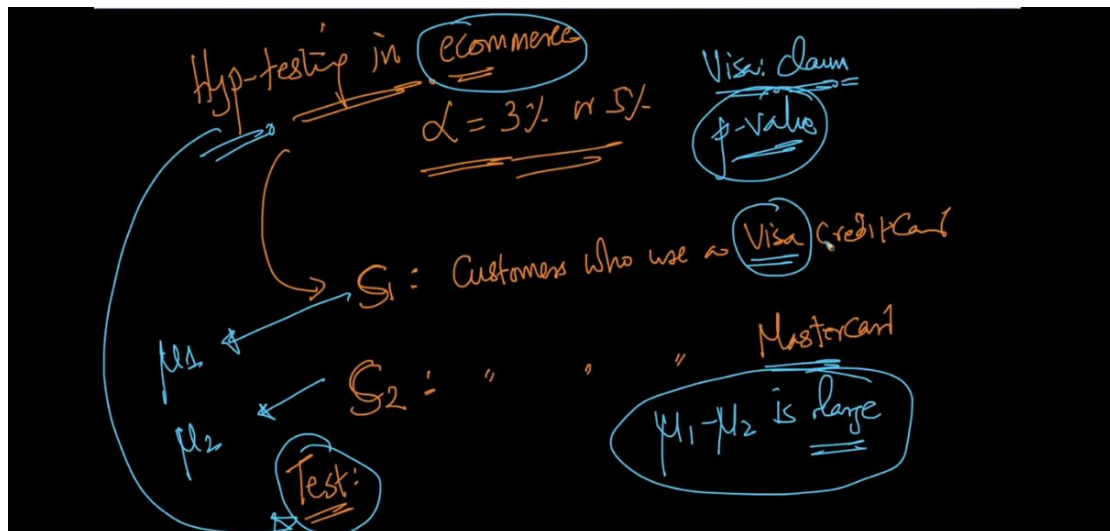 Hyp-testing in ecommerce
α = 3% or 5%
Visa: claim
p-value
S1: Customers who use a Visa Credit Card
S2: " " " Mastercard
μ1
μ2
μ1-μ2 is large
Test: